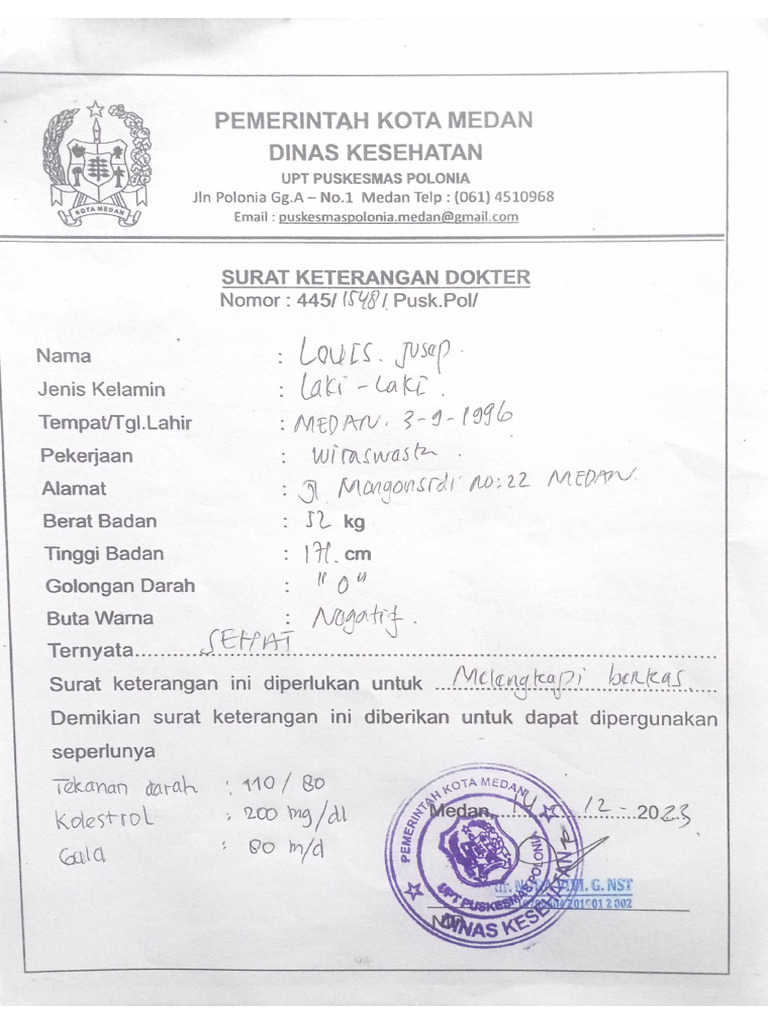 KOTA MEDAN
PEMERINTAH KOTA MEDAN
DINAS KESEHATAN
UPT PUSKESMAS POLONIA
Jln Polonia Gg.A – No.1 Medan Telp : (061) 4510968
Email : puskesmaspolonia.medan@gmail.com
SURAT KETERANGAN DOKTER
Nomor : 445/ 1548/ Pusk.Pol/
Nama : LOUIS. Jusep.
Jenis Kelamin : Laki - Laki.
Tempat/Tgl.Lahir : MEDAN. 3-9-1996
Pekerjaan : Wiraswasta.
Alamat : Jl Mongonsidi no:22 MEDAN.
Berat Badan : 52 kg
Tinggi Badan : 171. cm
Golongan Darah : "O"
Buta Warna : Negatif.
Ternyata SEHAT
Surat keterangan ini diperlukan untuk Melengkapi berkas.
Demikian surat keterangan ini diberikan untuk dapat dipergunakan
seperlunya
Tekanan darah : 110 / 80
Kolestrol : 200 mg/dl
Gula : 80 m/d
Medan, 14 - 12 - 2023
PEMERINTAH KOTA MEDAN
UPT PUSKESMAS POLONIA
DINAS KESEHATAN
dr. G. NST
NIP